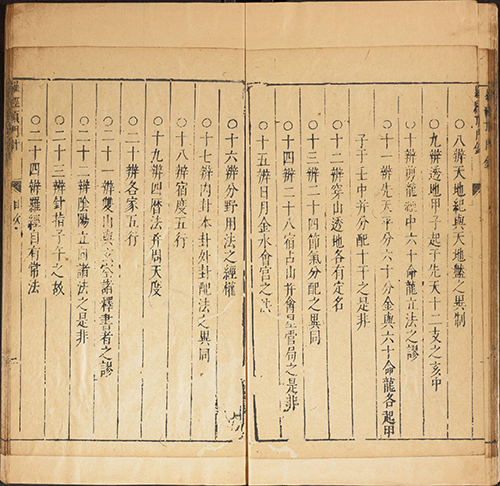 ○八辨天地紀與天地盤之異制
○九辨透地甲子起于先天十二支之亥中
○十辨剪龍經中六十命龍立法之謬
○十一辨先天平分六十分金與六十命龍各起甲
子于壬中并分配十干之是非
○十二辨穿山透地各有定名
○十三辨二十四節氣分配之異同
○十四辨二十八宿占山并禽星管局之是非
○十五辨日月金水會宮之法
○十六辨分野用法之經權
○十七辨內卦本卦外卦配法之異同
○十八辨宿度五行
○十九辨四曆法并周天度
○二十辨各家五行
○二十一辨雙山與玄空諸釋書者之謬
○二十二辨陰陽立向諸法之是非
○二十三辨針指子午之故
○二十四辨羅經自有常法
羅經頂門針
目次